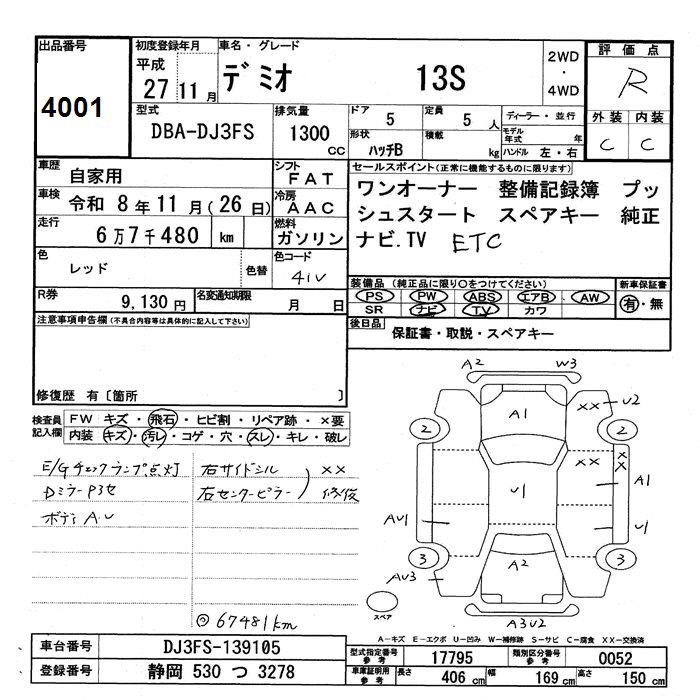 出品番号
4001
初度登録年月
平成
27 11 月
車名・グレード
デミオ 13S
2WD
・
4WD
評価点
R
外装 内装
C C
型式
DBA-DJ3FS
排気量
1300
CC
ドア
5
定員
5 人
ディーラー・並行
形状
ハッチB
積載
kg
モデル年式 年
ハンドル 左・右
車歴
自家用
シフト
FAT
車検
令和 8年11月(26日)
冷房
AAC
走行
6万7千480 km
燃料
ガソリン
色
レッド
色替
色コード
41V
R券
9,130円
名変通知期限
月 日
セールスポイント(正常に機能するものに限ります)
ワンオーナー 整備記録簿 プッ
シュスタート スペアキー 純正
ナビ.TV ETC
装備品 (純正品に限り○をつけてください)
PS PW ABS エアB AW
SR ナビ TV カワ
新車保証書
有・無
後日品
保証書・取説・スペアキー
注意事項申告欄(不具合内容等は具体的に記入して下さい)
修復歴 有〔箇所 〕
検査員記入欄
FW キズ・飛石・ヒビ割・リペア跡・×要
内装 キズ・汚レ・コゲ・穴・スレ・キレ・破レ
E/Gチェックランプ点灯
Dミラー
ボディAU
右サイドシル
右センターピラー
××
修復
◎67481km
A2 W3
A1
×× U2
2 2
××
××
A1
U1
AU1
U1
3 3
A2
AU3
A3U2
スペア
A-キズ E-エクボ U-凹み W-補修跡 S-サビ C-腐食 XX-交換済
車台番号
DJ3FS-139105
登録番号
静岡 530 つ 3278
型式指定番号
参考
17795
類別区分番号
参考
0052
車庫証明用
参考
長さ
406 cm
幅
169 cm
高さ
150 cm